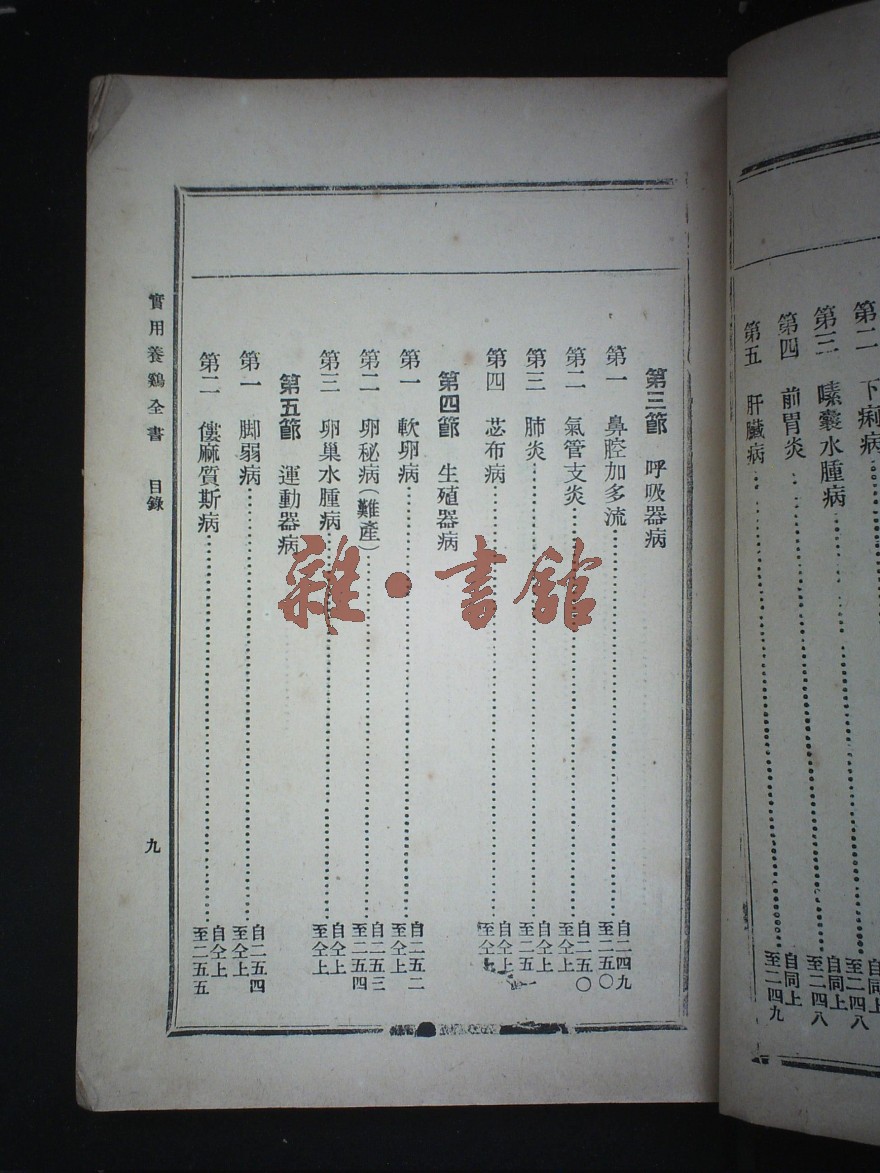 第二 下痢病 自同上 至二四八
第三 嗉囊水腫病 自同上 至二四八
第四 前胃炎 自同上 至二四八
第五 肝臟病 自同上 至二四九
第三節 呼吸器病
第一 鼻腔加多流 自二四九 至二五〇
第二 氣管支炎 自二五〇 至仝上
第三 肺炎 自仝上 至二五
第四 苾布病 自仝上 至仝上
第四節 生殖器病
第一 軟卵病 自二五二 至仝上
第二 卵秘病(難產) 自二五三 至二五四
第三 卵巢水腫病 自仝上 至仝上
第五節 運動器病
第一 脚弱病 自二五四 至仝上
第二 僂麻質斯病 自仝上 至二五五
實用養鷄全書 目錄
九
雜·書館